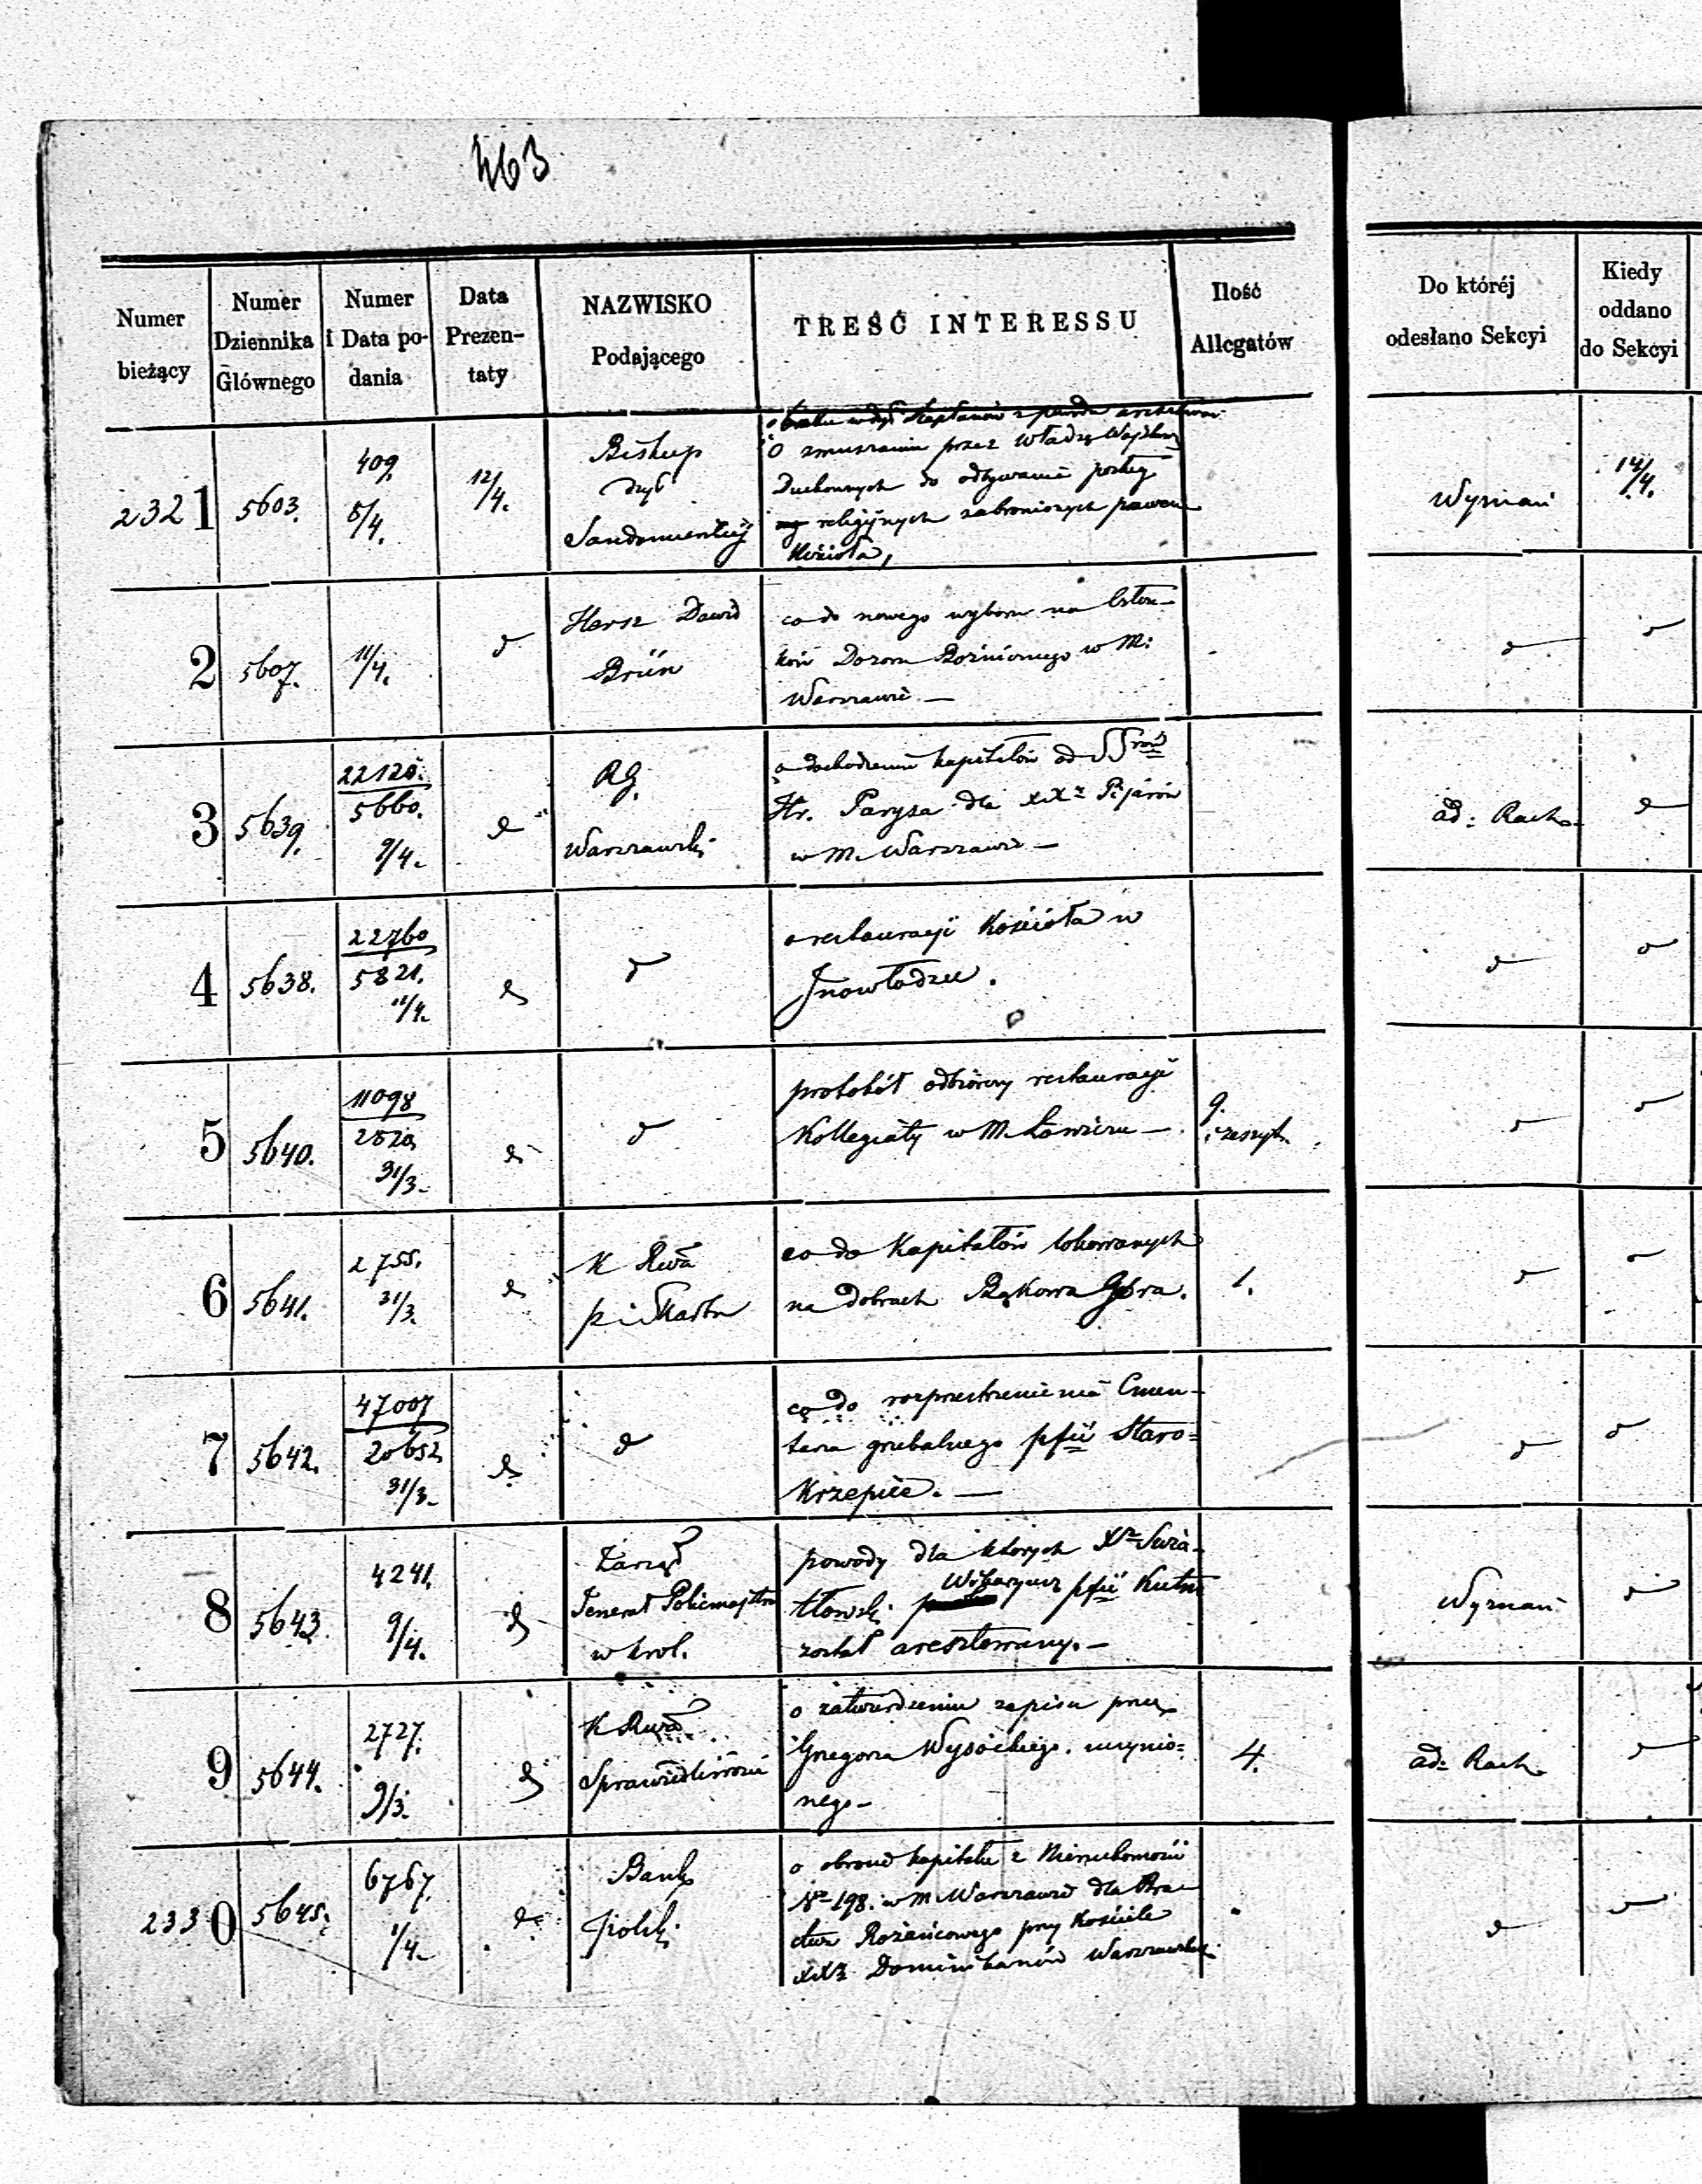 463
Numer bieżący
Numer Dziennika Głównego
Numer i Data podania
Data Prezentaty
NAZWISKO Podającego
TREŚĆ INTERESSU
Ilość Allegatów
Do któréj odesłano Sekcyi
Kiedy oddano do Sekcyi
2321 5603. 409. 5/4. 12/4.
Biskup
Dyć
Sandomierskiej
o braku w dyć Kapłanów z powodu
O zmuszaniu przez Władzę Wojskow
Duchownych do odbywania posług
religijnych zabronionych prawem
Kościoła,
Wyznań 14/4.
2 5607. 11/4. d
Hersz Dawid
Brün
co do nowego wyboru na Człon-
ków Dozoru Bożnicznego w M:
Warszawie. —
d d
3 5639. 22120. 5660. 9/4. d
RG.
Warszawski
o dochodzeniu kapitałów od SSrów
Hr. Parysa dla XXz Pijarów
w M. Warszawie —
ad: Rach. d
4 5638. 22760 5821. 11/4. d
d
o restauracyi Kościoła w
Inowłodzu.
d d
5 5640. 11098 2520, 31/3. d
d
protokół odbiorczy restauracyi
Kollegiaty w M. Łowiczu —
9. zeszyt.
d d
6 5641. 2755. 31/3. d
K Rwa
P. i Skarbu
co do Kapitałów lokowanych
na dobrach Bąkowa Góra.
1.
d d
7 5642. 47007 20652, 31/3. d
d
co do rozprzestrzenienia Cmen-
tarza grzebalnego pfii Staro=
Krzepice. —
d d
8 5643. 4241. 9/4. d
Zarząd
Jenerał Policmajstra
w Król.
powody dla których Xz Świą-
tkowski Wikaryusz pfii Kutno
został aresztowany. —
Wyznań d
9 5644. 2727. 9/3. d
K Rwa
Sprawiedliwości
o zatwierdzeniu zapisu przez
Grzegorza Wysockiego. uczynio=
nego —
4.
ad: Rach. d
2330 5645. 6767. 1/4. d
Bank
Polski
o obronie kapitału z Nieruchomości
Nr 198. w M. Warszawie dla Bra-
ctwa Różańcowego przy Kościele
XXz Dominikanów Warszawskich.
d d